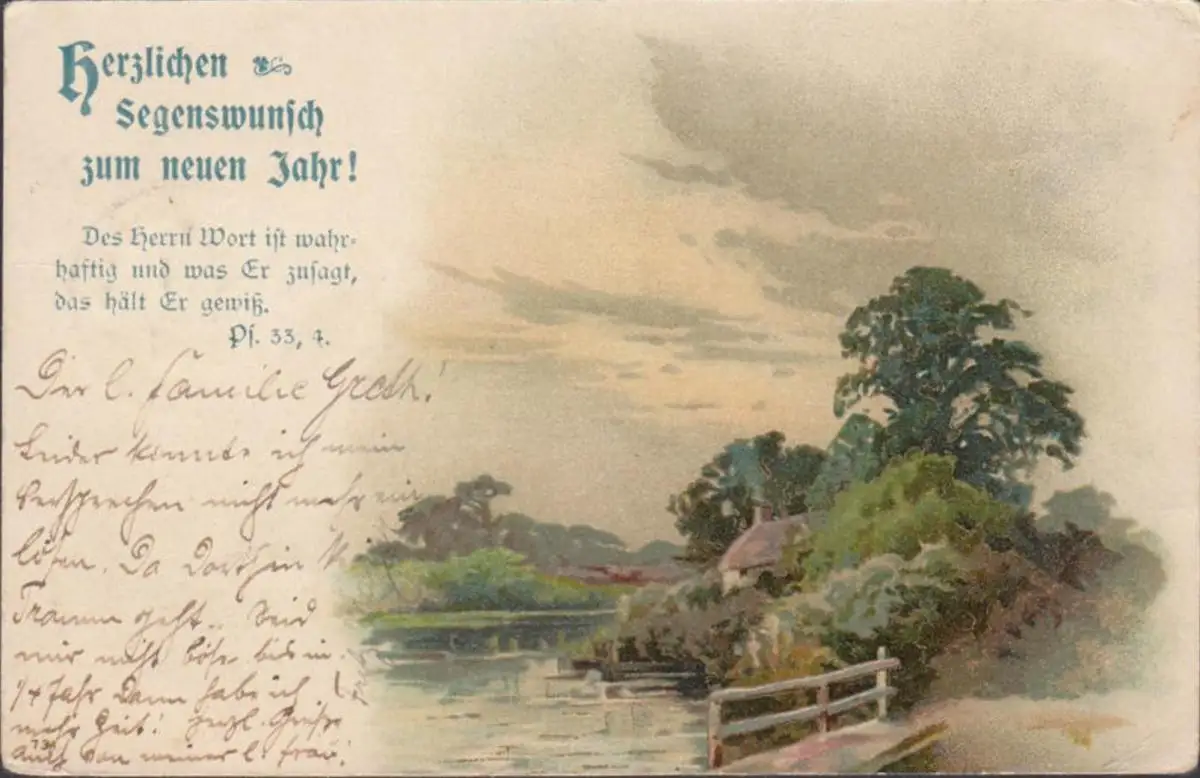 Herzlichen
Segenswunsch
zum neuen Jahr!
Des Herrn Wort ist wahr-
haftig und was Er zusagt,
das hält Er gewiß.
Ps. 33, 4.
Der l. Familie Greth!
Leider konnte ich mein
Versprechen nicht mehr ein
lösen. Da Dorthin
geht.. Seid
mir nicht böse bis in
1/4 Jahr Dann habe ich
mehr Zeit! Herzl. Grüße
auch von meiner l. Frau!